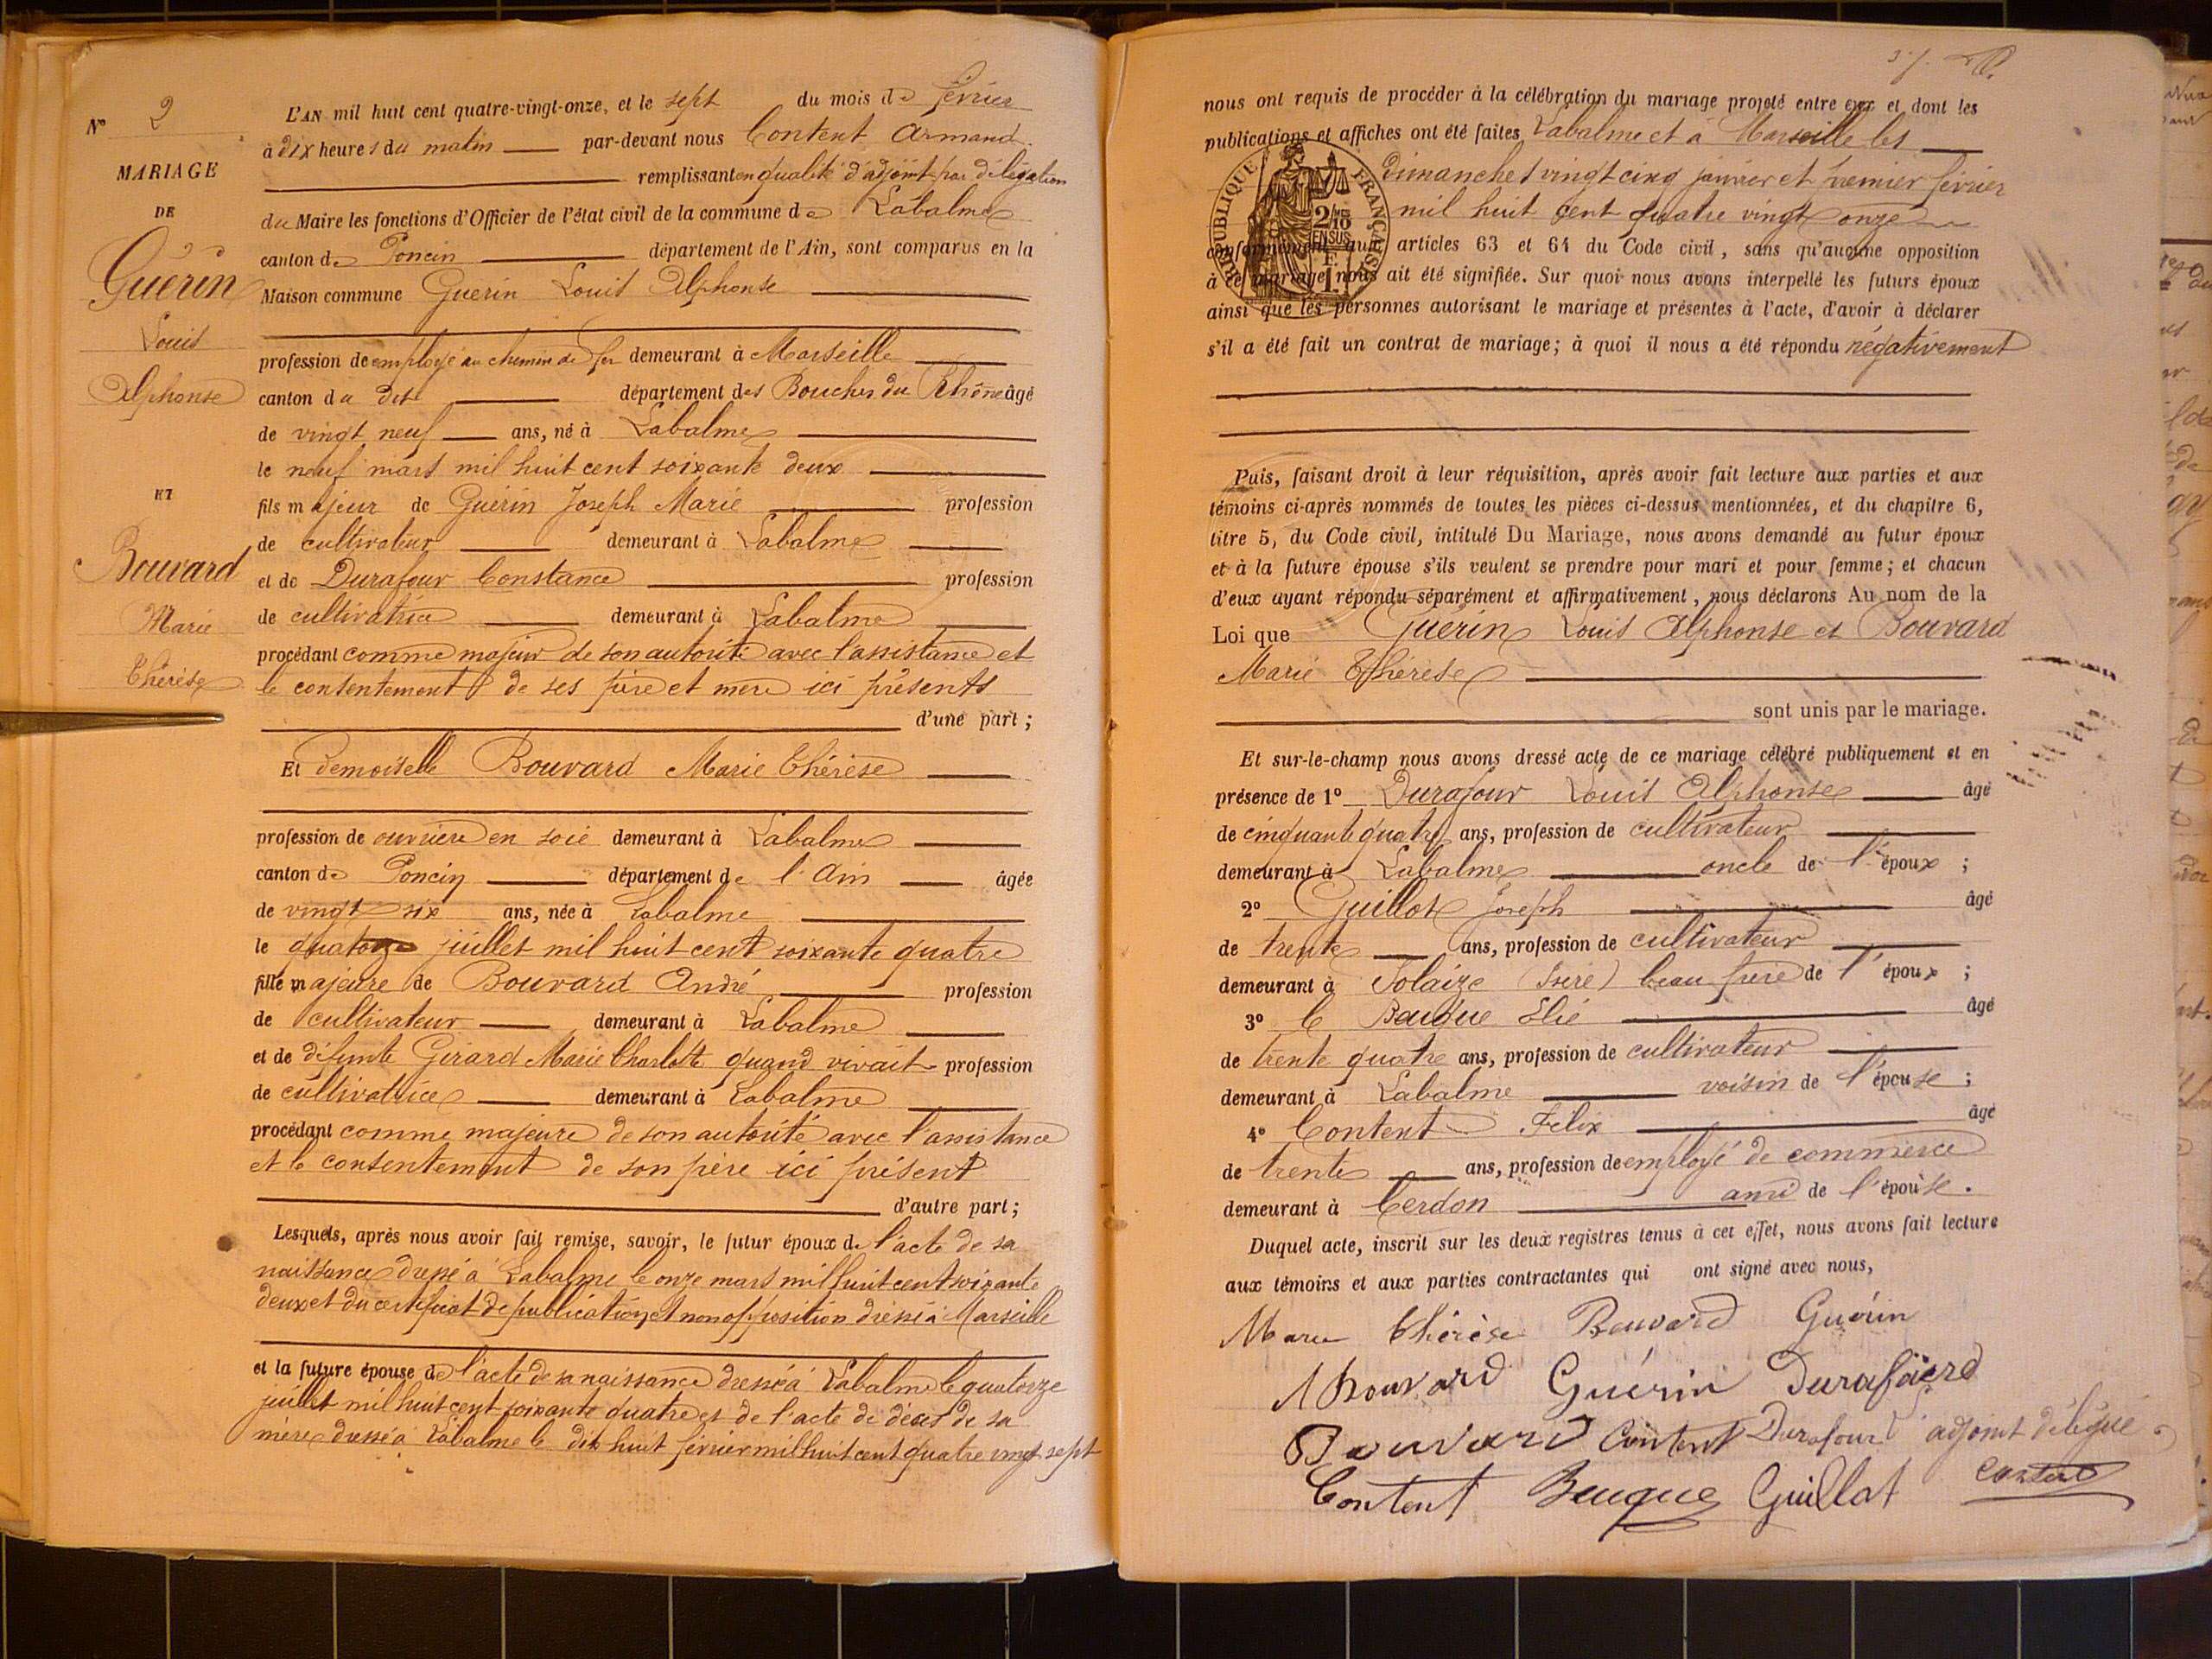 N° 2
MARIAGE
DE
Guérin
Louis
Alphonse
ET
Bouvard
Marie
Thérèse
L'AN mil huit cent quatre-vingt-onze, et le sept du mois de février
à dix heures du matin par-devant nous Content Armand
remplissant en qualité d'adjoint par délégation
du Maire les fonctions d'Officier de l'état civil de la commune de Labalme
canton de Poncin département de l'Ain, sont comparus en la
Maison commune Guerin Louis Alphonse
profession de employé au chemin de fer demeurant à Marseille
canton du dit département des Bouches du Rhône âgé
de vingt neuf ans, né à Labalme
le neuf mars mil huit cent soixante deux
fils majeur de Guérin Joseph Marie profession
de cultivateur demeurant à Labalme
et de Durafour Constance profession
de cultivatrice demeurant à Labalme
procédant comme majeur de son autorité avec l'assistance et
le consentement de ses père et mère ici présents
d'une part ;
Et demoiselle Bouvard Marie Thérèse
profession de ouvrière en soie demeurant à Labalme
canton de Poncin département de l'Ain âgée
de vingt six ans, née à Labalme
le quatorze juillet mil huit cent soixante quatre
fille majeure de Bouvard André profession
de cultivateur demeurant à Labalme
et de défunte Girard Marie Charlotte quand vivait profession
de cultivatrice demeurant à Labalme
procédant comme majeure de son autorité avec l'assistance
et le consentement de son père ici présent
d'autre part ;
Lesquels, après nous avoir fait remise, savoir, le futur époux de l'acte de sa
naissance dressé à Labalme le onze mars mil huit cent soixante
deux et du certificat de publication et non opposition dressé à Marseille
et la future épouse de l'acte de sa naissance dressé à Labalme le quatorze
juillet mil huit cent soixante quatre et de l'acte de décès de sa
mère dressé à Labalme le dix huit février mil huit cent quatre vingt sept
nous ont requis de procéder à la célébration du mariage projeté entre eux et dont les
publications et affiches ont été faites Labalme et à Marseille les
dimanches vingt cinq janvier et premier février
mil huit cent quatre vingt onze
RÉPUBLIQUE FRANÇAISE
2/10
EN SUS
conformément aux articles 63 et 64 du Code civil, sans qu'aucune opposition
à ce mariage nous ait été signifiée. Sur quoi nous avons interpellé les futurs époux
ainsi que les personnes autorisant le mariage et présentes à l'acte, d'avoir à déclarer
s'il a été fait un contrat de mariage; à quoi il nous a été répondu négativement
Puis, faisant droit à leur réquisition, après avoir fait lecture aux parties et aux
témoins ci-après nommés de toutes les pièces ci-dessus mentionnées, et du chapitre 6,
titre 5, du Code civil, intitulé Du Mariage, nous avons demandé au futur époux
et à la future épouse s'ils veulent se prendre pour mari et pour femme; et chacun
d'eux ayant répondu séparément et affirmativement, nous déclarons Au nom de la
Loi que Guérin Louis Alphonse et Bouvard
Marie Thérèse
sont unis par le mariage.
Et sur-le-champ nous avons dressé acte de ce mariage célébré publiquement et en
présence de 1° Durafour Louis Alphonse âgé
de cinquante quatre ans, profession de cultivateur
demeurant à Labalme oncle de l'époux ;
2° Guillot Joseph âgé
de trente ans, profession de cultivateur
demeurant à Solaize (Isère) beau frère de l'époux ;
3° Elie âgé
de trente quatre ans, profession de cultivateur
demeurant à Labalme voisin de l'épouse ;
4° Content Félix âgé
de trente ans, profession de employé de commerce
demeurant à Cerdon ami de l'épouse.
Duquel acte, inscrit sur les deux registres tenus à cet effet, nous avons fait lecture
aux témoins et aux parties contractantes qui ont signé avec nous,
Marie Thérèse Bouvard Guérin
Bouvard Guérin
Bouvard Content Durafour adjoint délégué
Content Guillot Content